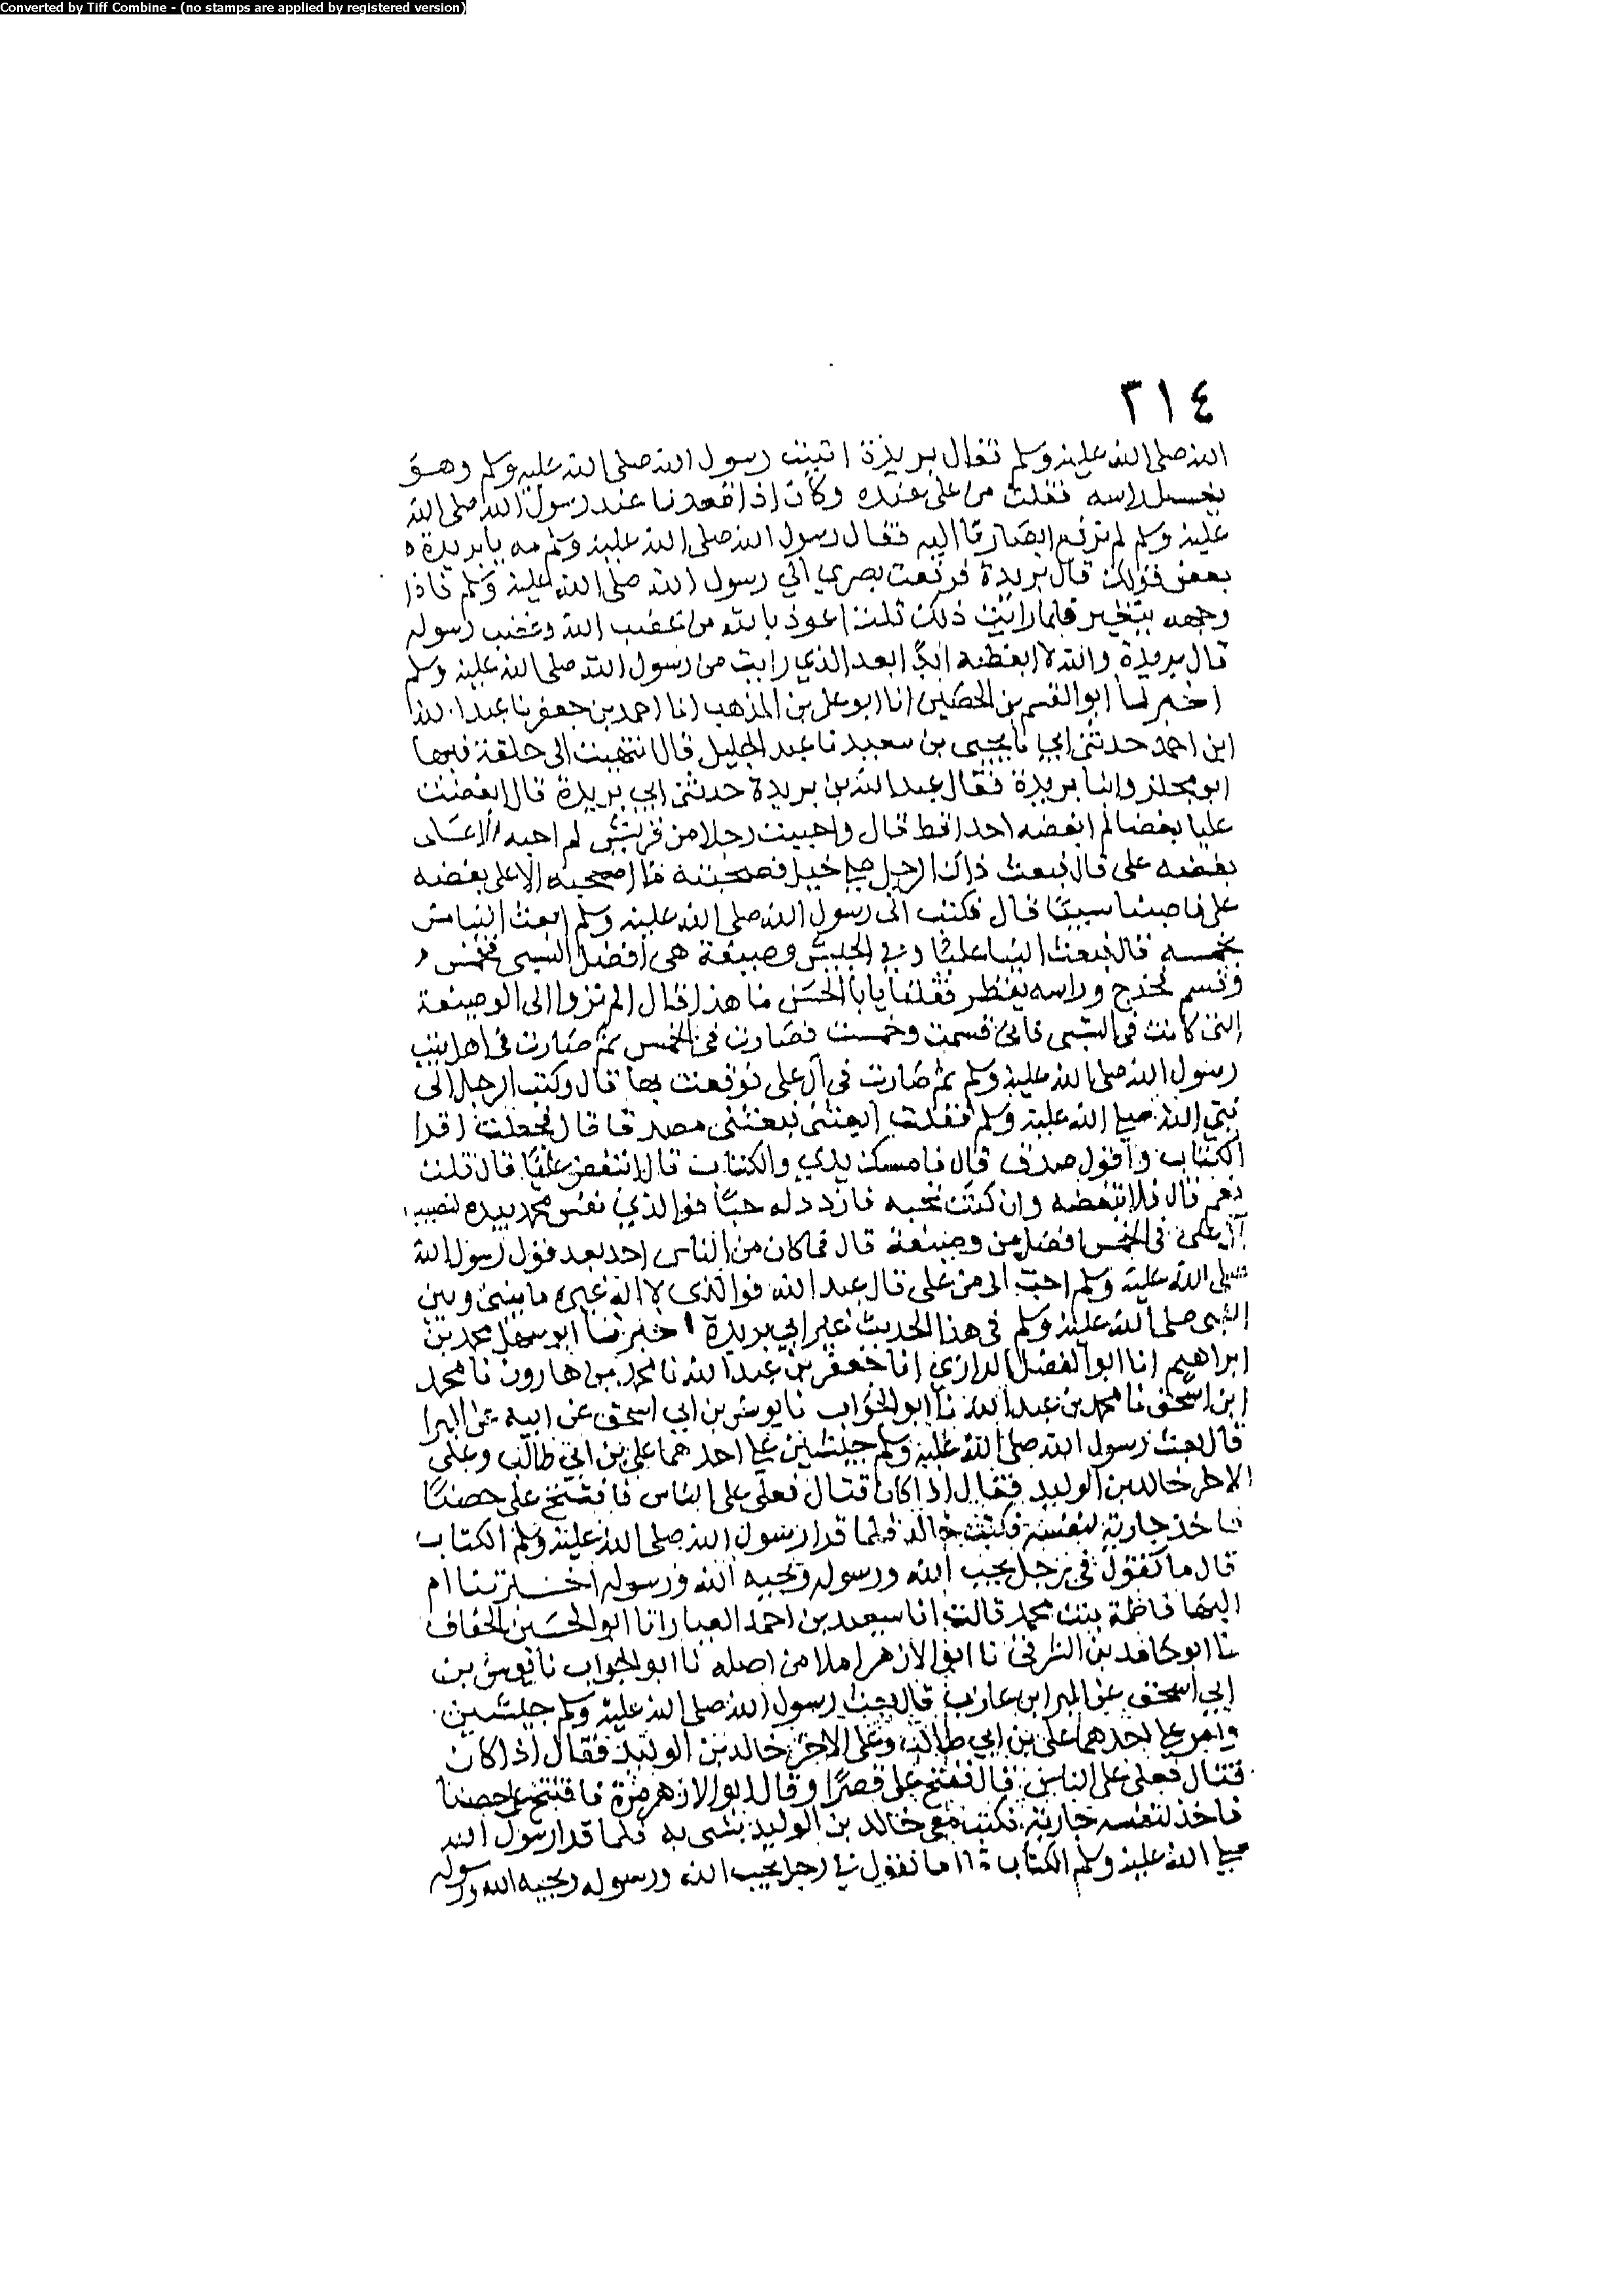 Converted by Tiff Combine - (no stamps are applied by registered version)
٣١٤
الله صلى الله عليه وسلم فقال بريدة اتيت رسول الله صلى الله عليه وسلم وهو
يغسل راسه فنلت من على عنده وكان اذا قعدنا عند رسول الله صلى الله
عليه وسلم لم نرفع ابصارنا اليه فقال رسول الله صلى الله عليه وسلم مه يا بريدة
بعض قولك قال بريدة فرفعت بصري الى رسول الله صلى الله عليه وسلم فاذا
وجهه يتغير فلما رايت ذلك قلت اعوذ بالله من غضب الله وغضب رسوله
قال بريدة والله لا ابغضه ابدا بعد الذي رايت من رسول الله صلى الله عليه وسلم
اخبرنا ابو القسم بن الحصين انا ابو علي بن المذهب انا احمد بن جعفر نا عبد الله
ابن احمد حدثني ابي نا يحيى بن سعيد نا عبد الجليل قال انتهيت الى حلقة فيها
ابو مجلز وابنا بريدة فقال عبد الله بن بريدة حدثني ابي بريدة قال ابغضت
عليا بغضا لم ابغضه احدا قط قال واحببت رجلا من قريش لم احبه الا على
بغضه على قال فبعث ذاك الرجل على خيل فصحبته ما اصحبه الا على بغضه
على فاصبنا سبيا قال فكتب الى رسول الله صلى الله عليه وسلم ابعث الينا من
يخمسه قال فبعث الينا عليا وفي الجيش وصيفة هي افضل السبي فخمس و
وقسم فخرج وراسه يقطر فقلنا يا ابا الحسن ما هذا قال الم تروا الى الوصيفة
التي كانت في السبي فاني قسمت وخمست فصارت في الخمس ثم صارت في اهل بيت
رسول الله صلى الله عليه وسلم ثم صارت في آل على فوقعت بها قال وكتب الرجل الى
نبي الله صلى الله عليه وسلم فقلت ابعثني فبعثني مصدقا قال فجعلت اقرا
الكتاب واقول صدق قال فامسك يدي والكتاب قال اتبغض عليا قال قلت
نعم قال فلا تبغضه وان كنت تحبه فازدد له حبا فوالذي نفس محمد بيده لنصيب
آل على في الخمس افضل من وصيفة قال فما كان من الناس احد بعد قول رسول الله
صلى الله عليه وسلم احب الى من على قال عبد الله فوالذي لا اله غيره ما بيني وبين
النبي صلى الله عليه وسلم في هذا الحديث غير ابي بريدة اخبرنا ابو سهل محمد بن
ابراهيم انا ابو الفضل الرازي انا جعفر بن عبد الله نا محمد بن هارون نا محمد
ابن اسحق نا محمد بن عبد الله نا ابو الجواب نا يونس بن ابي اسحق عن ابيه عن البرا
قال بعث رسول الله صلى الله عليه وسلم جيشين على احدهما على بن ابي طالب وعلى
الاخر خالد بن الوليد فقال اذا كان قتال فعلى على الناس فافتتح على حصنا
فاخذ جارية لنفسه فكتب خالد فلما قرا رسول الله صلى الله عليه وسلم الكتاب
قال ما تقول في رجل يحب الله ورسوله ويحبه الله ورسوله اخبرتنا ام
البها فاطمة بنت محمد قالت انا سعيد بن احمد العيار انا ابو الحسين الخفاف
نا ابو حامد بن الشرقي نا ابو الازهر املا من اصله نا ابو الجواب نا يونس بن
ابي اسحق عن البرا بن عازب قال بعث رسول الله صلى الله عليه وسلم جيشين
وامر على احدهما على بن ابي طالب وعلى الاخر خالد بن الوليد فقال اذا كان
قتال فعلى على الناس قال ففتح على قصرا وقال ابو الازهر مرة فافتتح على حصنا
فاخذ لنفسه جارية فكتب معي خالد بن الوليد يشي به فلما قرا رسول الله
صلى الله عليه وسلم الكتاب قال ما تقول في رجل يحب الله ورسوله ويحبه الله ورسوله